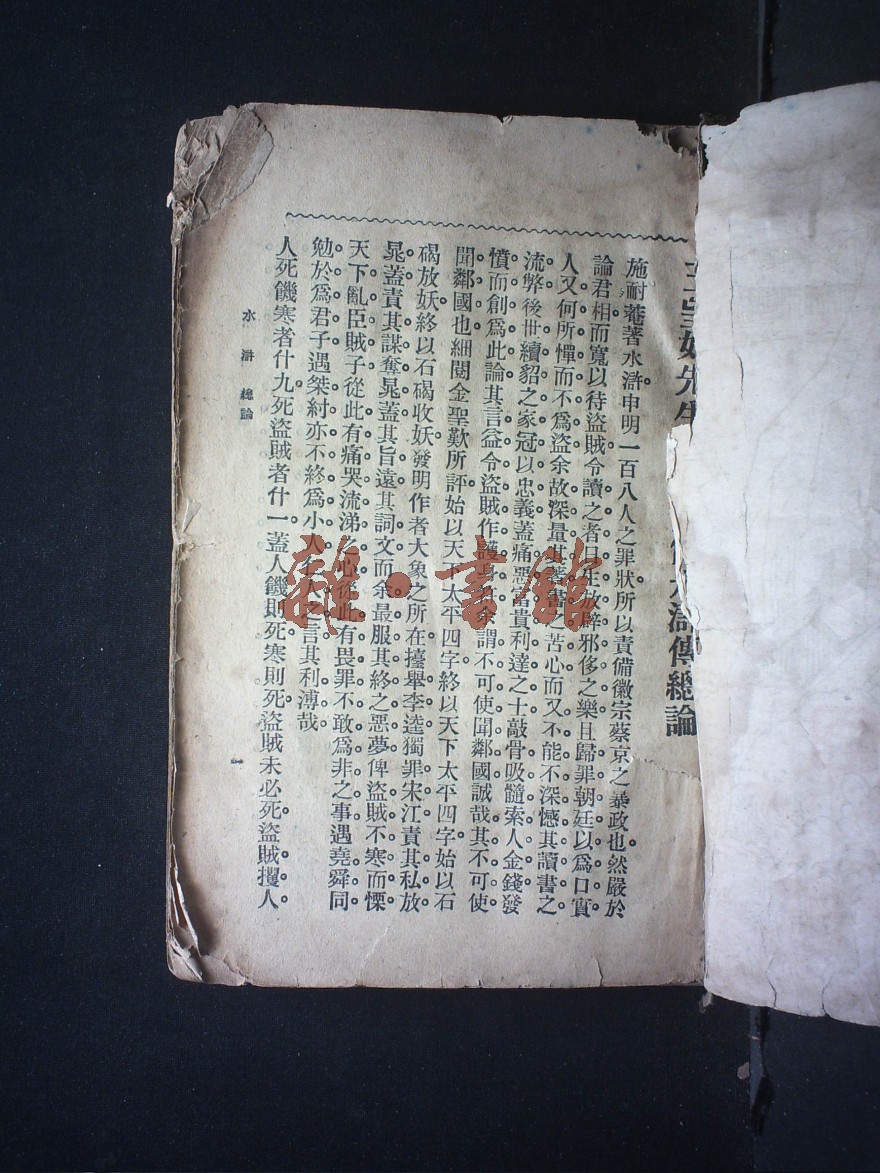 王望如先生 水滸傳總論
施耐菴著水滸申明一百八人之罪狀所以責備徽宗蔡京之暴政也然嚴於
論君相而寬以待盜賊令讀之者日生放辟邪侈之樂且歸罪朝廷以爲口實
人又何所憚而不爲盜余故深量其著書之苦心而又不能不深憾其讀書之
流弊後世續貂之家冠以忠義蓋痛惡富貴利達之士敲骨吸髓索人金錢發
憤而創爲此論其言益令盜賊作護身符余謂不可使聞鄰國誠哉其不可使
聞鄰國也細閱金聖歎所評始以天下太平四字終以天下太平四字始以石
碣放妖終以石碣收妖發明作者大象之所在擡舉李逵獨罪宋江責其私放
晁蓋責其謀奪晁蓋其旨遠其詞文而余最服其終之惡夢俾盜賊不寒而慄
天下亂臣賊子從此有痛哭流涕之心從此有畏罪不敢爲非之事遇堯舜同
勉於爲君子遇桀紂亦不終爲小人仁人之言其利溥哉
人死饑寒者什九死盜賊者什一蓋人饑則死寒則死盜賊未必死盜賊攫人
水滸 總論
一
雜·書館